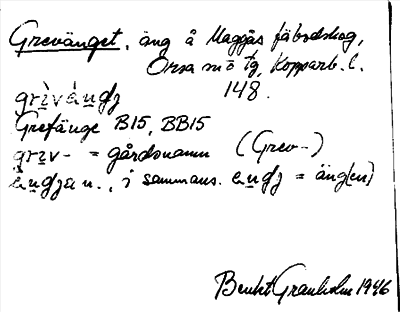 Grevänget, äng å Maggås fäbodskog,
Orsa sn ö fg, Kopparb. l.
148.
grìvàŋdʒ
Grefänge B15, BB15
grìv- = gårdsnamn (Grev-)
i sammans. = äng(en)
Bengt Granholm 1946